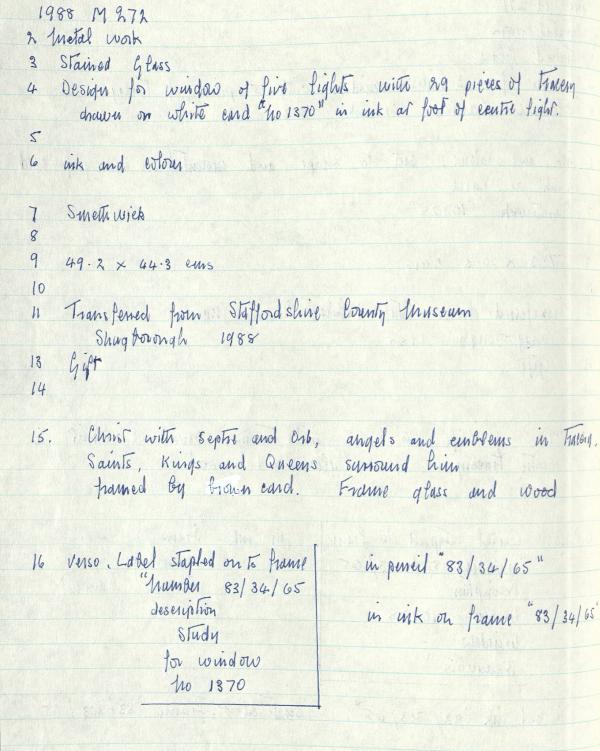 1988 M 272
2 Metal work
3 Stained Glass
4 Design for window of five lights with 29 pieces of tracery
drawn on white card "No 1370" in ink at foot of centre light.
5
6 ink and colour
7 Smethwick
8
9 49.2 x 44.3 cms
10
11 Transferred from Staffordshire County Museum
Shugborough 1988
13 Gift
14
15. Christ with Septre and Orb, angels and emblems in tracery.
Saints, Kings and Queens surround him
framed by brown card. Frame glass and wood
16 verso. Label stapled on to frame
"Number 83/34/65
description
Study
for window
No 1370
in pencil "83/34/65"
in ink on frame "83/34/65"